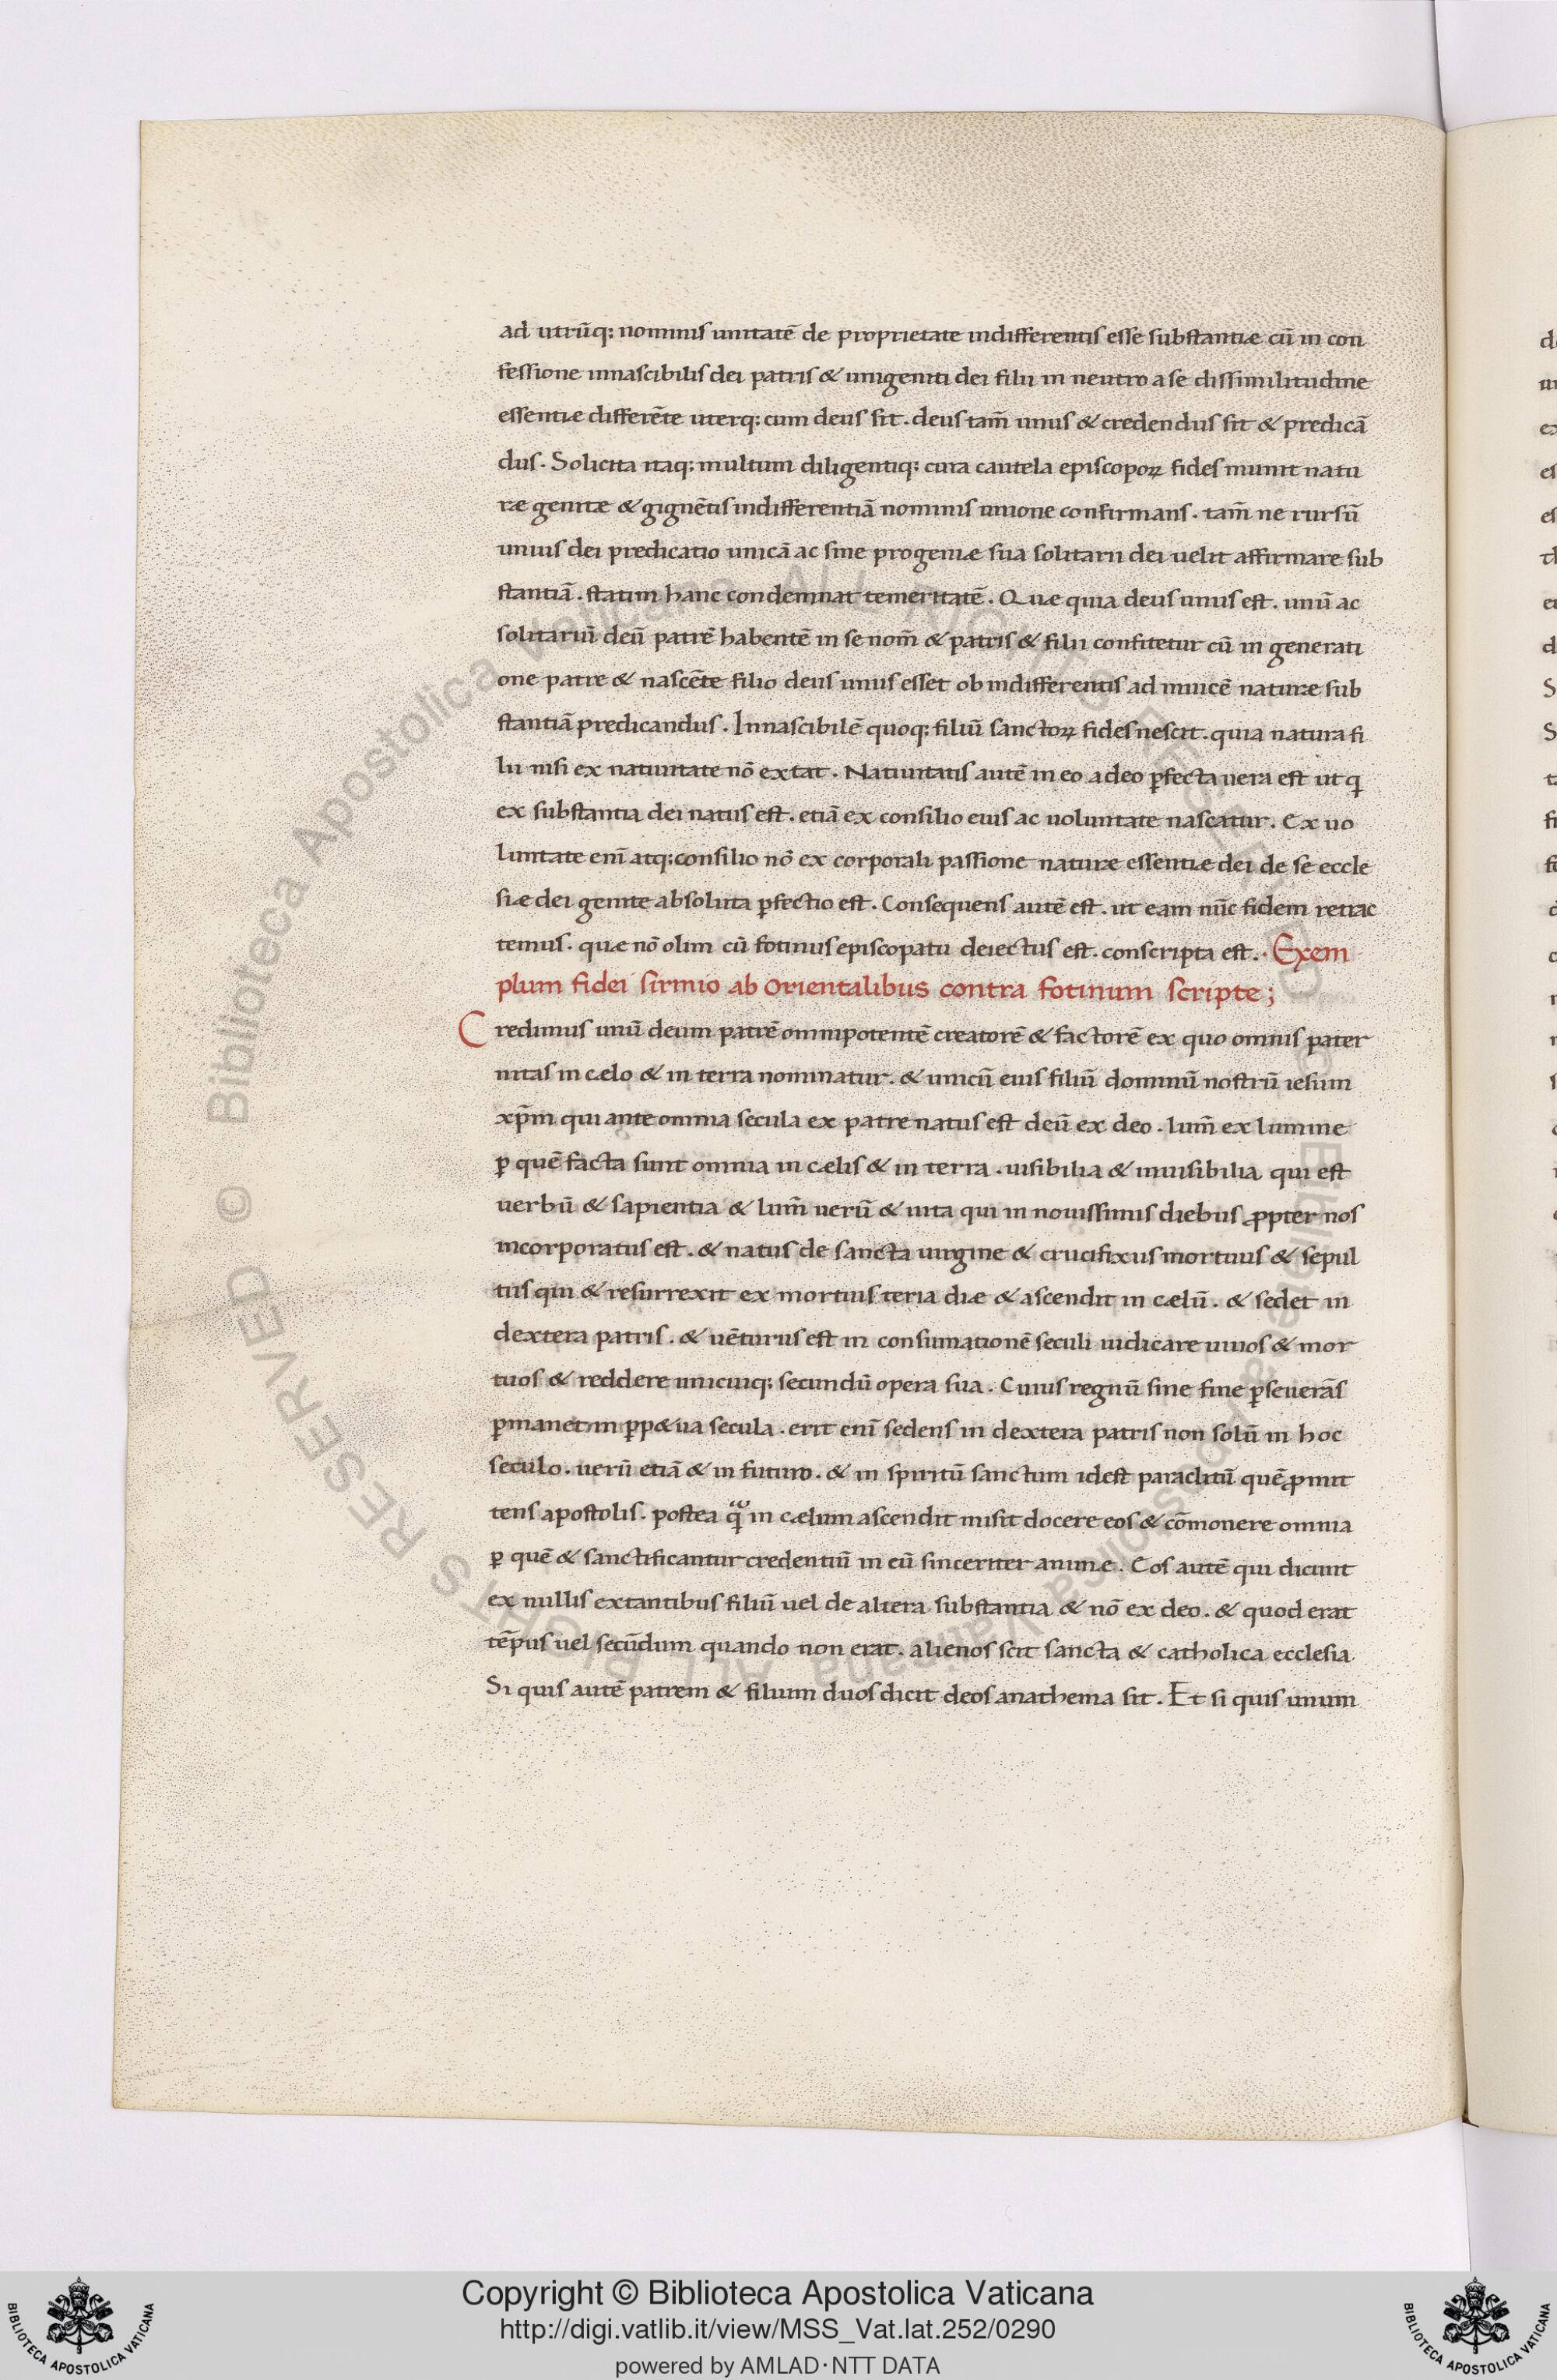 ad utrūq; nominis unitatē de proprietate indifferentis esse substantiæ cū in con
fessione innascibilis dei patris & unigeniti dei filii in neutro a se dissimilitudine
essentiæ differēte uterq; cum deus sit. deus tam̄ unus & credendus sit & predicā
dus. Solicita itaq; multum diligentiq; cura cautela episcopoꝝ fides munit natu
ræ genitæ & gignētis indifferentiā nominis unione confirmans. tam̄ ne rursū
unius dei predicatio unicā ac sine progeniæ sua solitarii dei uelit affirmare sub
stantiā. statim hanc condemnat temeritatē. Quæ quia deus unus est. unū ac
solitariū deū patrē habentē in se nom̄ & patris & filii confitetur cū in generati
one patre & nascēte filio deus unus esset ob indifferentis ad inuicē naturæ sub
stantiā predicandus. Innascibilē quoq; filiū sanctoꝝ fides nescit. quia natura fi
lii nisi ex natiuitate nō extat. Natiuitatis autē in eo adeo ꝑfecta uera est ut q
ex substantia dei natus est. etiā ex consilio eius ac uoluntate nascatur. Ex uo
luntate enī atq; consilio nō ex corporali passione naturæ essentiæ dei de se eccle
siæ dei genite absoluta ꝑfectio est. Consequens autē est. ut eam nūc fidem retrac
temus. quæ nō olim cū fotinus episcopatu deiectus est. conscripta est. Exem
plum fidei sirmio ab orientalibus contra fotinum scripte;
Credimus unū deum patrē omnipotentē creatorē & factorē ex quo omnis pater
nitas in cælo & in terra nominatur. & unicū eius filiū dominū nostrū iesum
xp̄m qui ante omnia secula ex patre natus est deū ex deo. lum̄ ex lumine
ꝑ quē facta sunt omnia in cælis & in terra. uisibilia & inuisibilia qui est
uerbū & sapientia & lum̄ uerū & uita qui in nouissimis diebus ꝓpter nos
incorporatus est. & natus de sancta uirgine & crucifixus mortuus & sepul
tus qui & resurrexit ex mortuis teria diæ & ascendit in cælū. & sedet in
dextera patris. & uēturus est in consumationē seculi iudicare uiuos & mor
tuos & reddere unicuiq; secundū opera sua. Cuius regnū sine fine ꝑseuerās
ꝑmanet in ꝑp&ua secula. erit enī sedens in dextera patris non solū in hoc
seculo. uerū etiā & in futuro. & in spiritū sanctum idest paraclitū quē ꝓmit
tens apostolis. postea in cælum ascendit misit docere eos & cōmonere omnia
ꝑ quē & sanctificantur credentiū in eū sinceriter animæ. Eos autē qui dicunt
ex nullis extantibus filiū uel de altera substantia & nō ex deo. & quod erat
tēpus uel secūdum quando non erat. alienos scit sancta & catholica ecclesia
Si quis autē patrem & filium duos dicit deos anathema sit. Et si quis unum
Copyright © Biblioteca Apostolica Vaticana
http://digi.vatlib.it/view/MSS_Vat.lat.252/0290
powered by AMLAD·NTT DATA
BIBLIOTECA APOSTOLICA VATICANA
BIBLIOTECA APOSTOLICA VATICANA